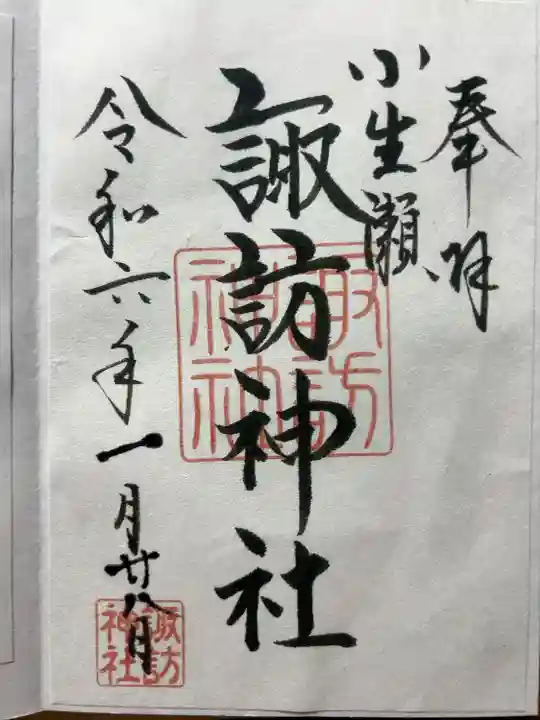 奉拝
小生瀬
諏訪神社
令和六年一月廿八日
諏訪神社
諏訪神社